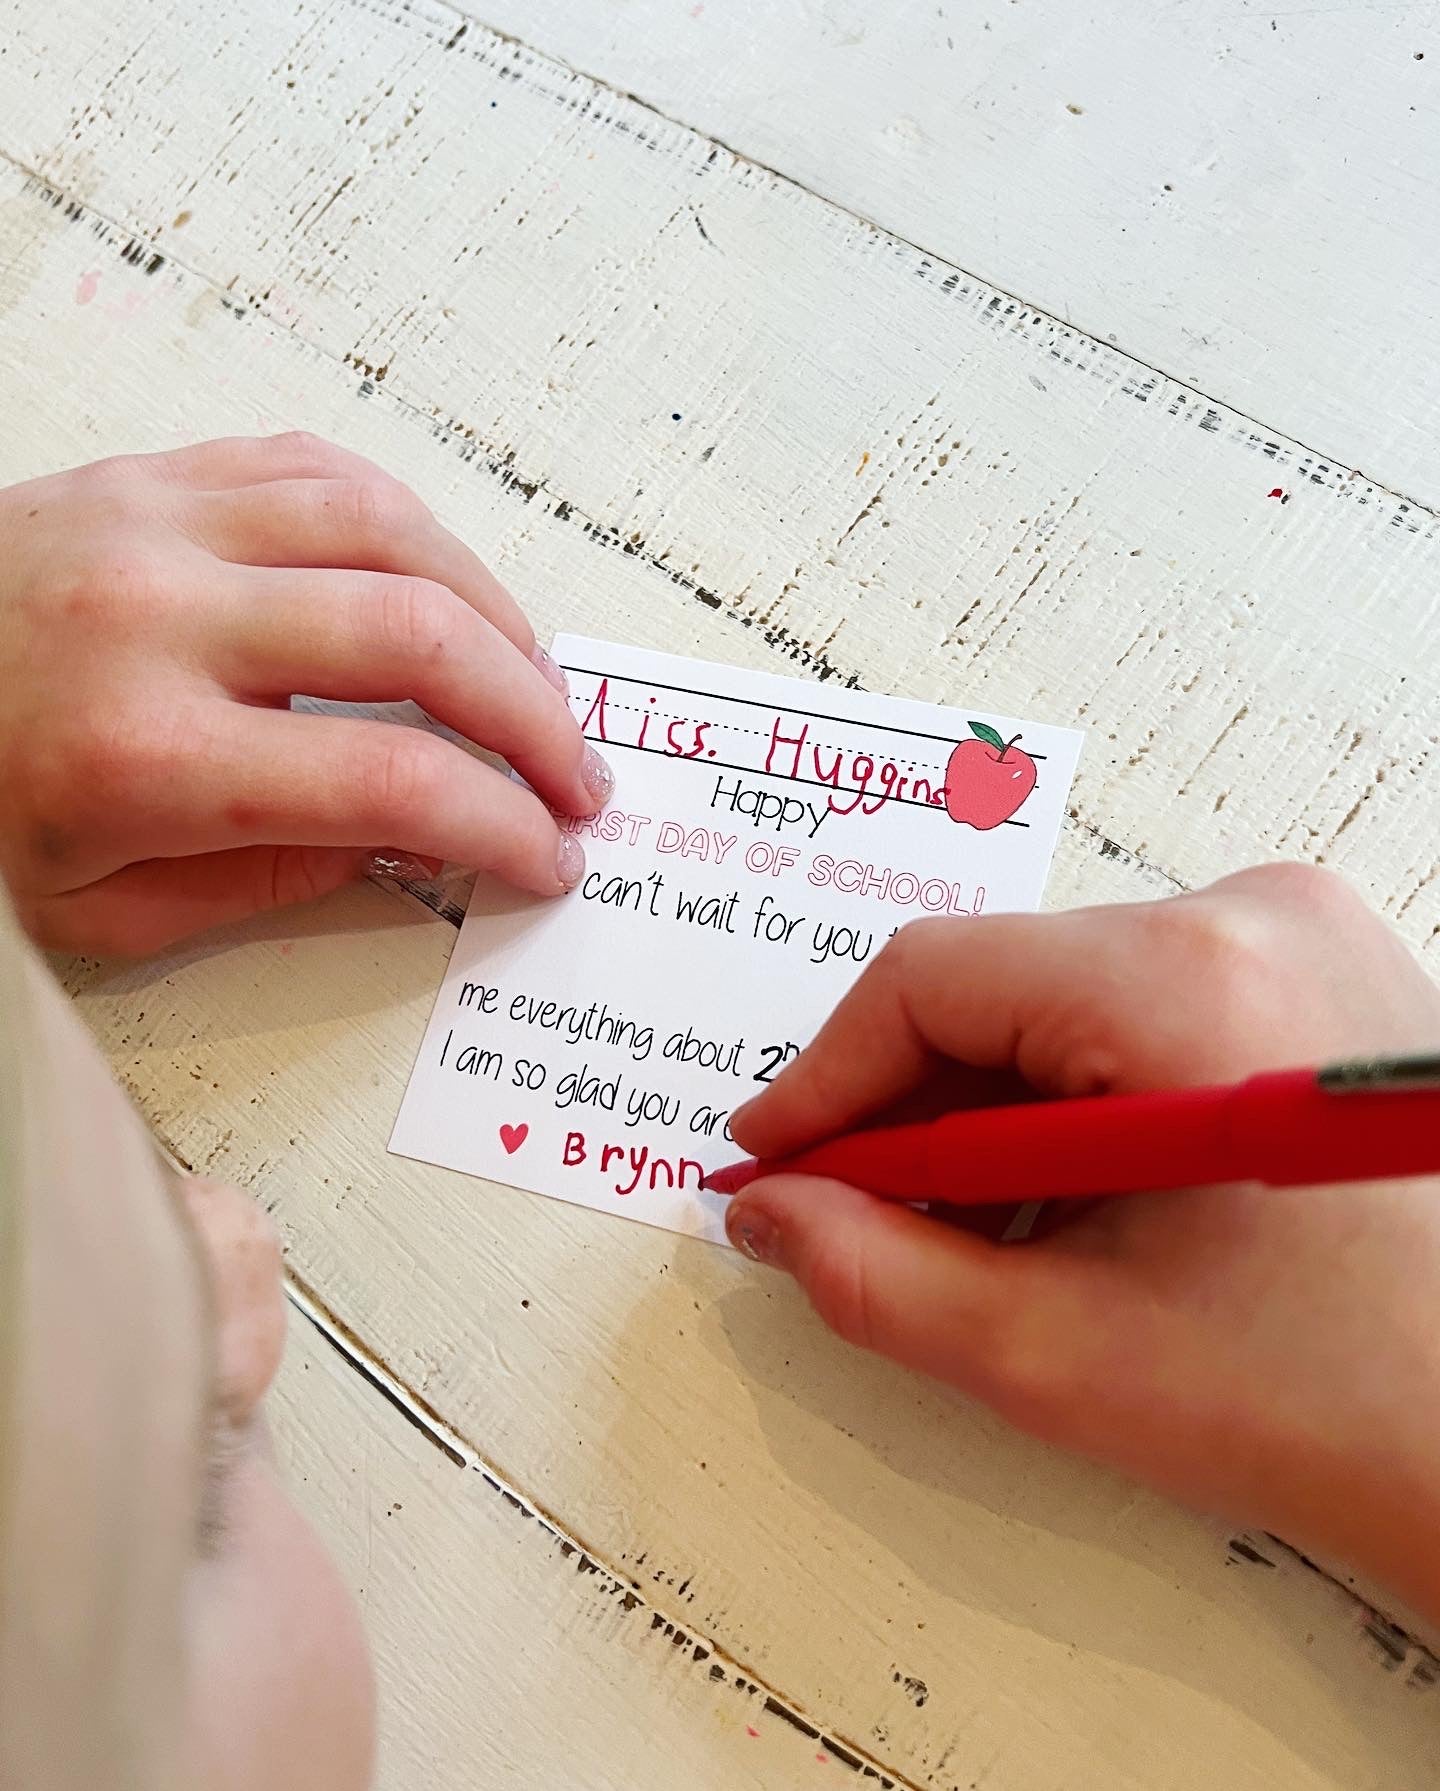 Miss. Huggins
Happy
FIRST DAY OF SCHOOL!
can't wait for you
me everything about
I am so glad you are
Brynn